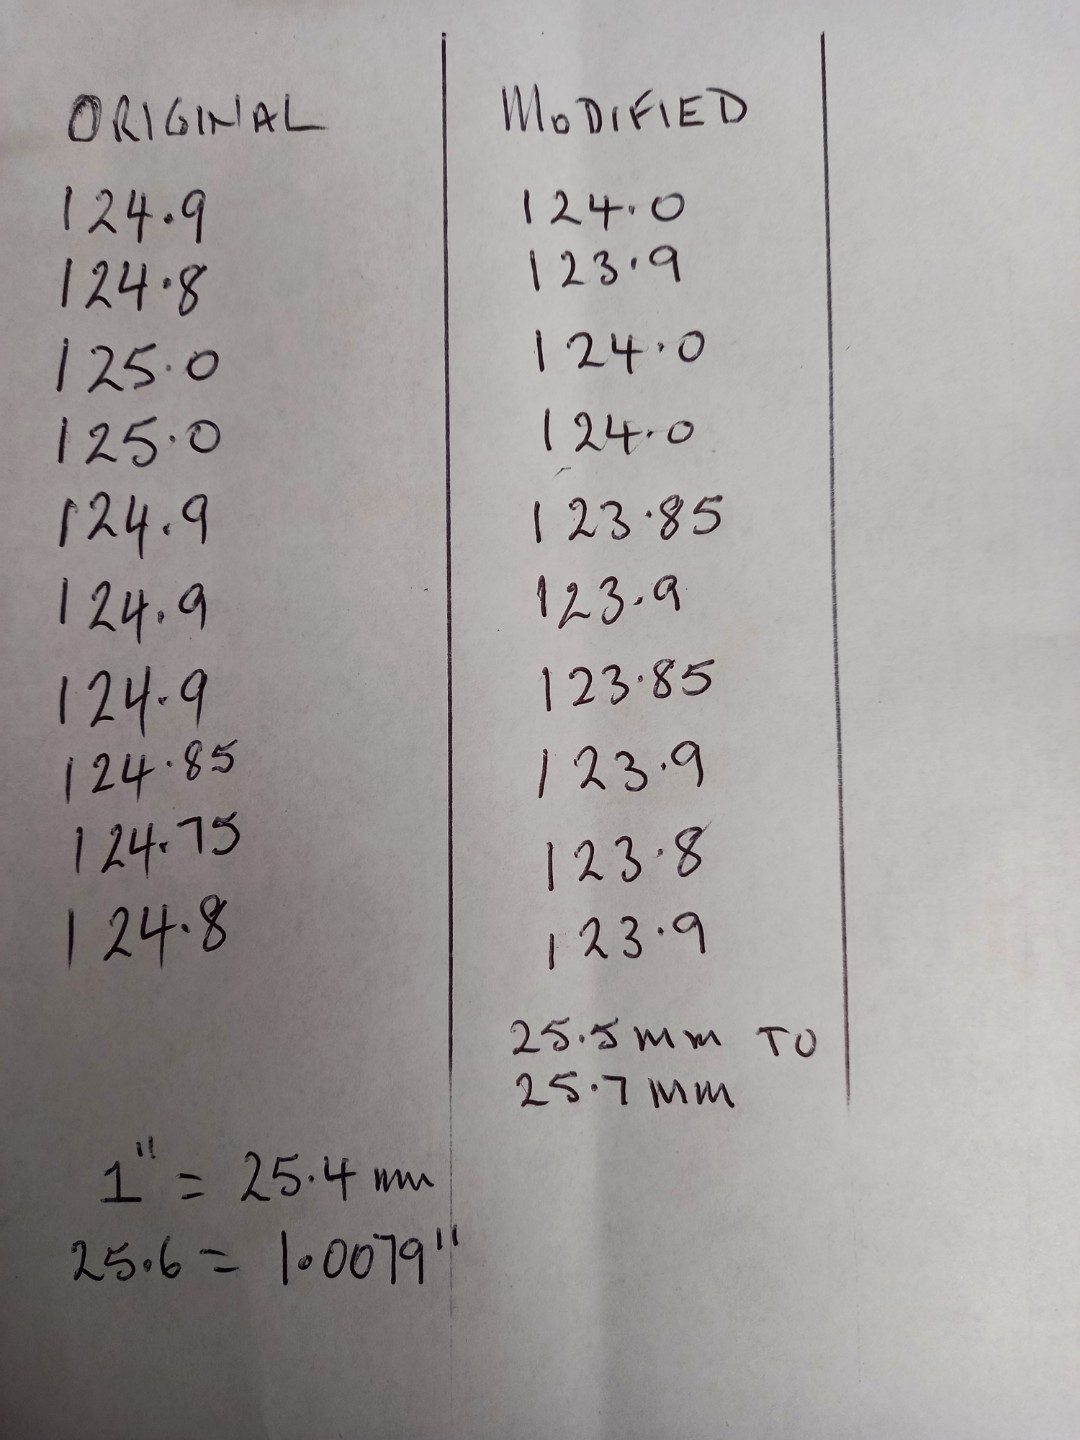 ORIGINAL
124.9
124.8
125.0
125.0
124.9
124.9
124.9
124.85
124.75
124.8
MODIFIED
124.0
123.9
124.0
124.0
123.85
123.9
123.85
123.9
123.8
123.9
25.5 mm TO
25.7 mm
1" = 25.4 mm
25.6 = 1.0079"